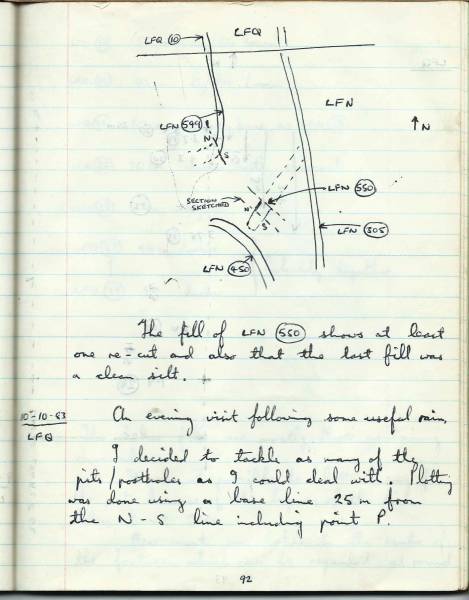 LFQ 10
LFQ
LFN
↑N
LFN 599
N
S
SECTION
SKETCHED
N
S
LFN 550
LFN 305
LFN 450
The fill of LFN 550 shows at least
one re-cut and also that the last fill was
a clean silt.
10-10-83
LFQ
An evening visit following some useful rain.
I decided to tackle as many of the
pits/postholes as I could deal with. Plotting
was done using a base line 25m from
the N-S line including point P.
92